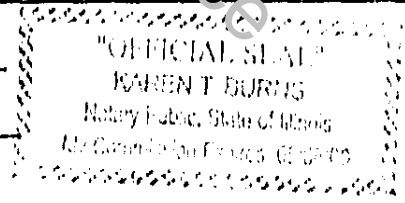 "OFFICIAL SEAL"
KAREN T. BURNS
Notary Public, State of Illinois
My Commission Expires